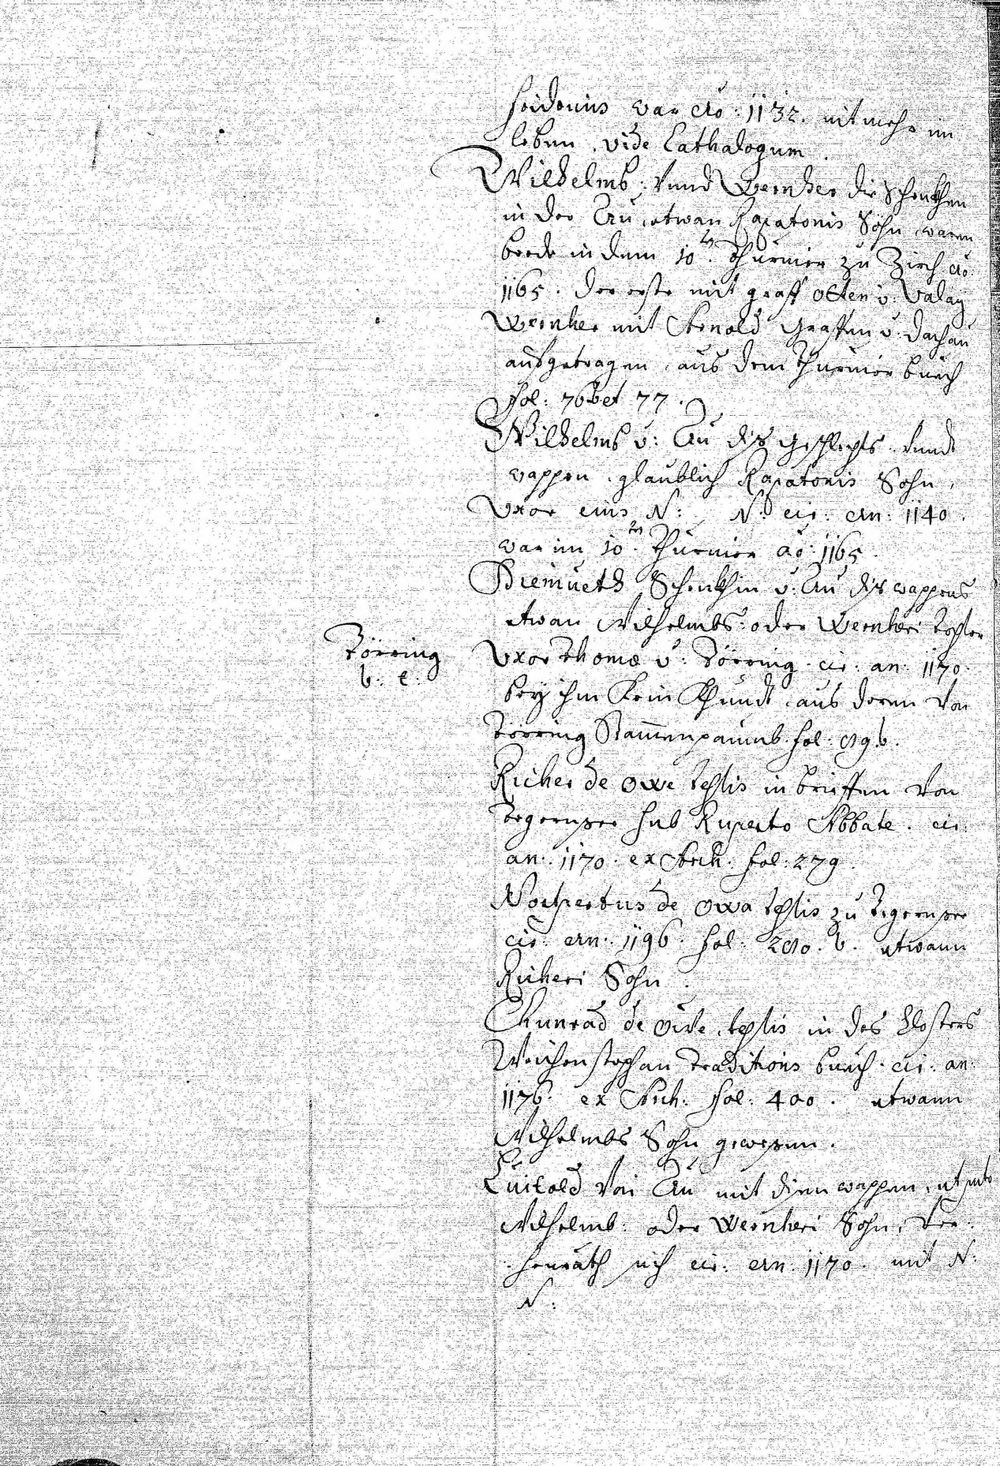 war Ao: 1132. nit mehr im
leben. vide Cathalogum.
Wilhelmb: vnnd Wernher die Schenkhen
in der Au, etwan Rapatonis Söhn, waren
beede in dem 10. Thurnier zu Zirch Ao:
1165. der erste mit graff Otten v: Valaÿ
Wernher mit Arnold Graffen v: Dachau
aufgetragen, aus dem Thurnier buech
fol: 76 et 77.
Wilhelmb v: Au diß geschlechts vnnd
wappen, glaublich Rapatonis Sohn,
Vxor eius N: N: cir: an: 1140.
war im 10. Thurnier ao: 1165.
Diemueth Schenkhin v: Au diß wappens
etwan Wilhelmbs: oder Wernheri tochter
Törring
b: t:
Vxor Thomæ v: Törring cir: an: 1170.
beÿ ihm kein Khindt, aus deren von
Törring Stammenpaumb fol:
Richer de Owe testis in brieffen von
Tegernsee sub Ruperto Abbate. cir:
an: 1170. ex Arch: fol: 279.
Nortpertus de Owa testis zu Tegernsee
cir: an: 1196. fol: 280. b. etwann
Richeri Sohn.
Chunrad de Owe, testis in des Closters
Weichenstephan Traditions buech. cir: an:
1176. ex Arch: fol: 400. etwann
Wilhelmbs Sohn gewesen.
Luitold von Au mit disen wappen,
Wilhelmb: oder Wernheri Sohn, ver-
heurath sich cir: an: 1170. mit N:
N: